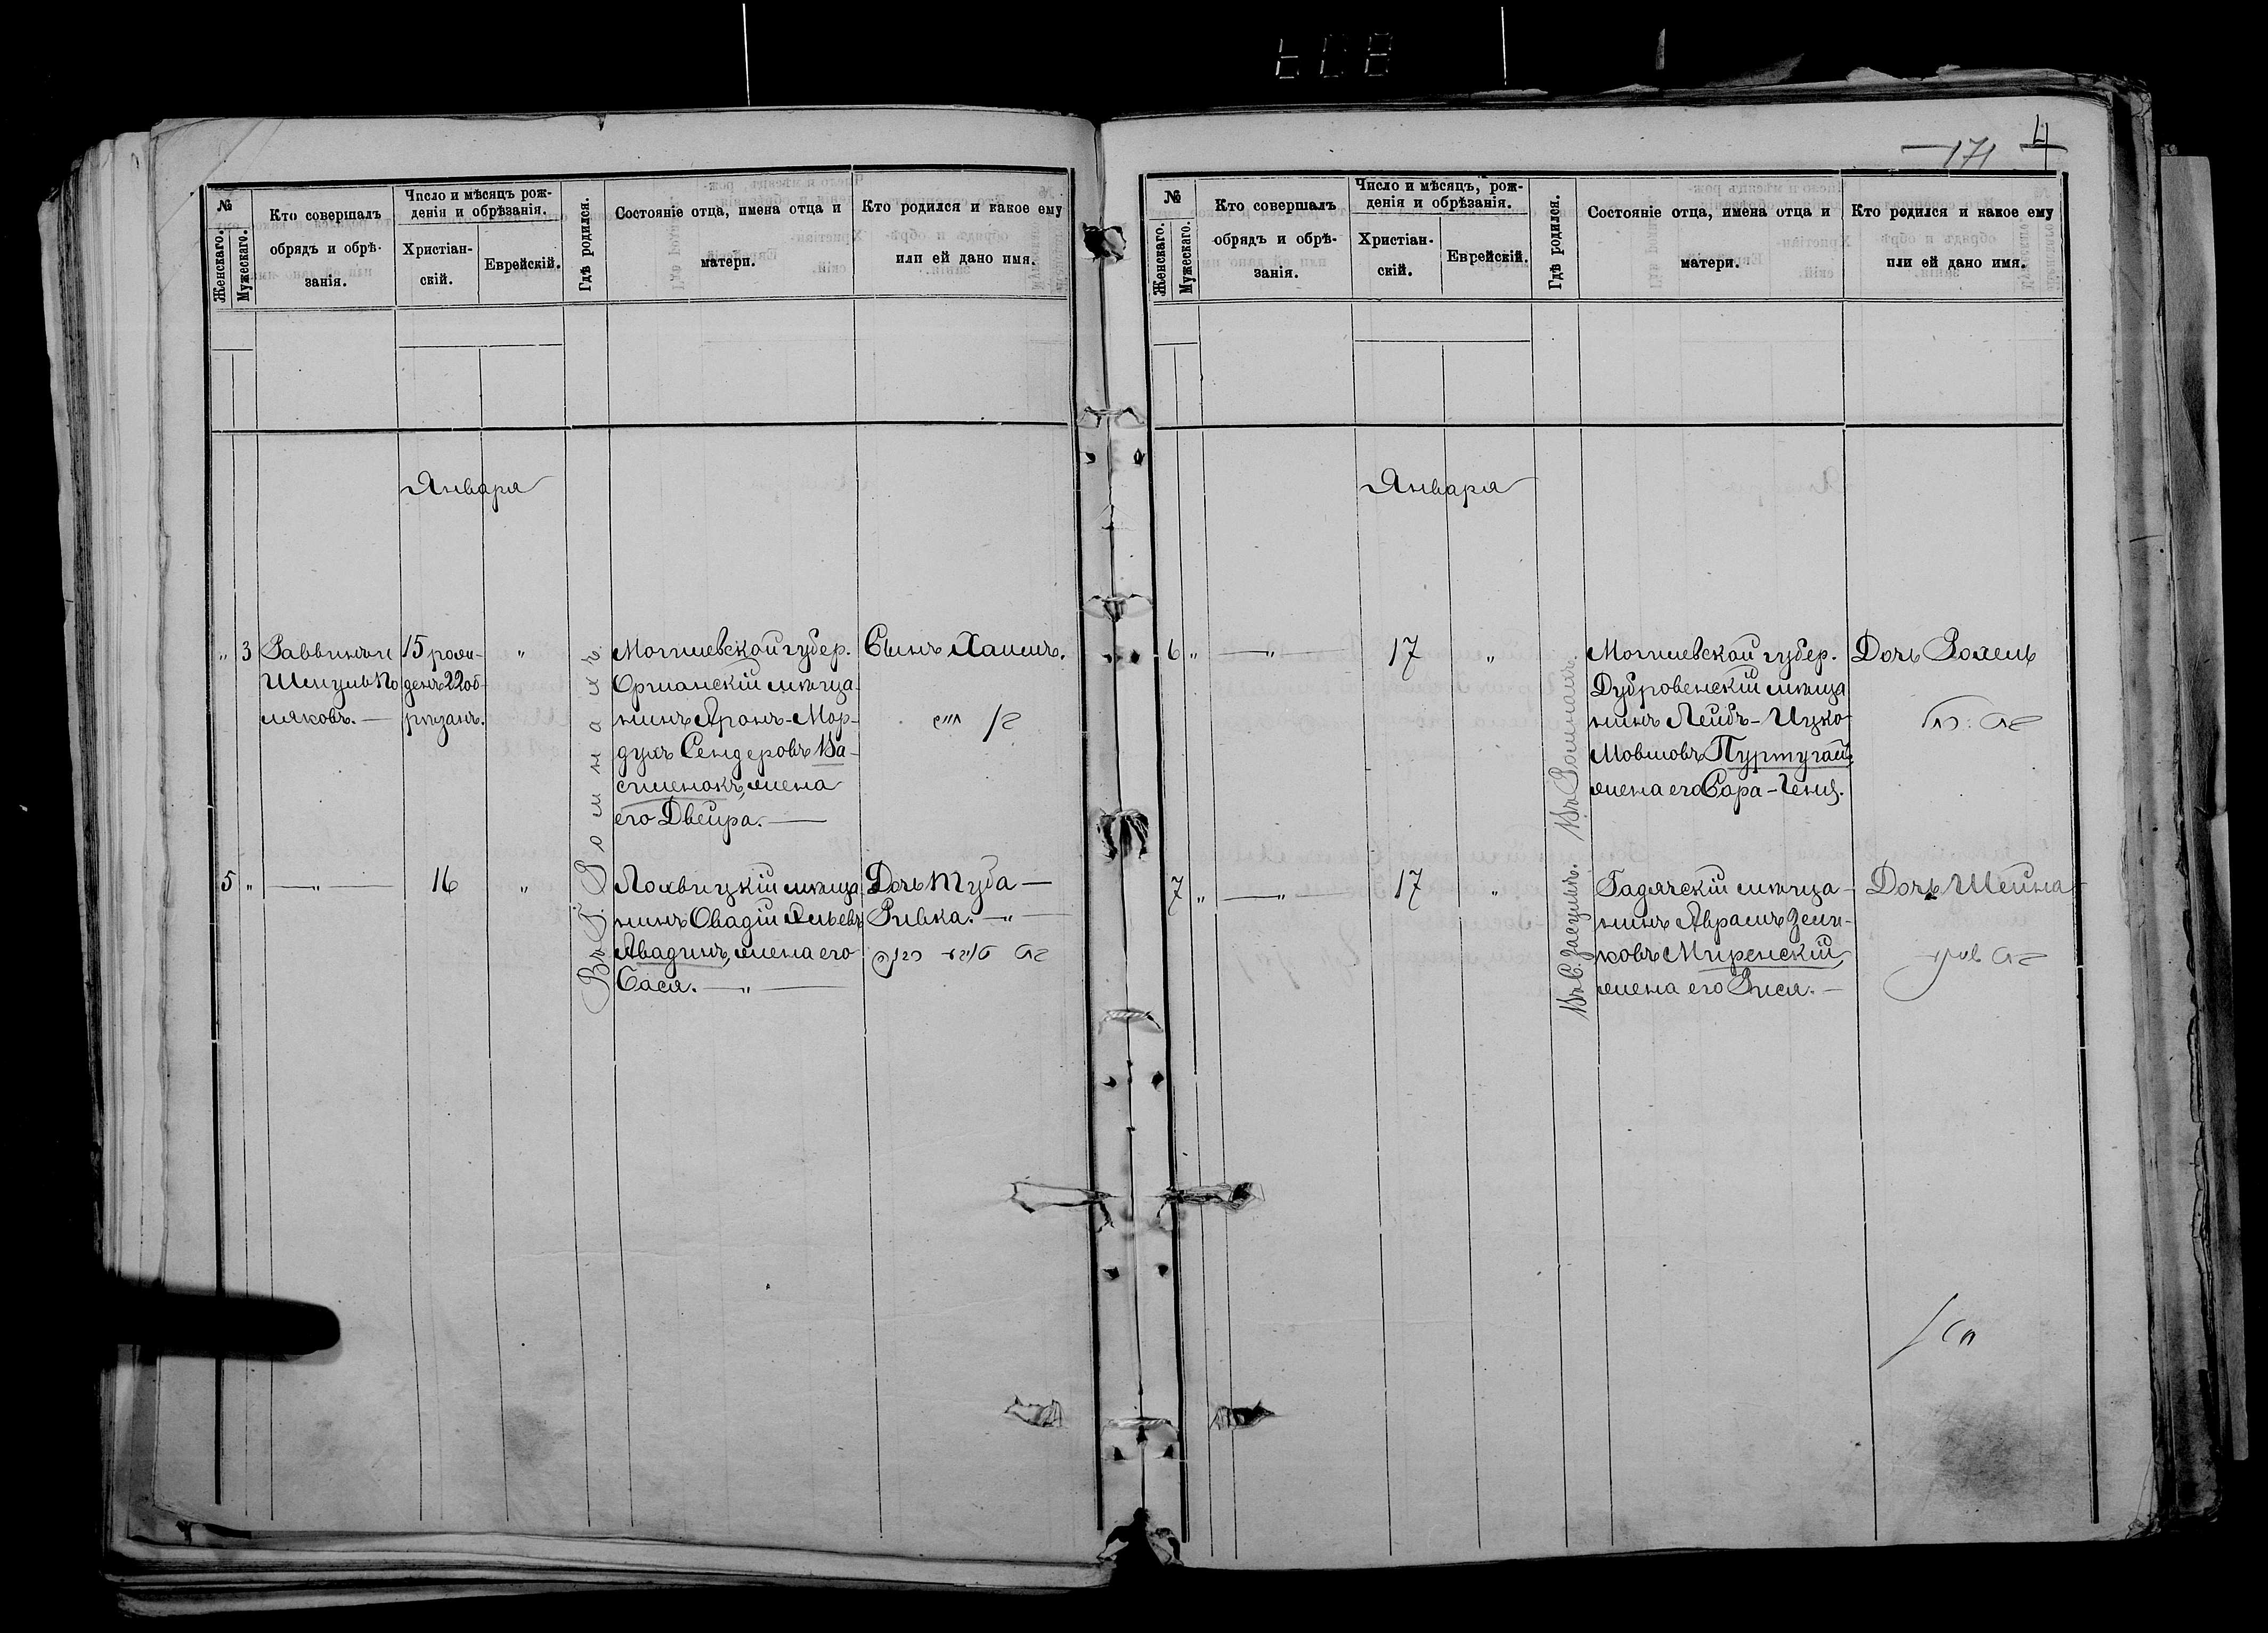 808
171 4
№
Женскаго.
Мужескаго.
Кто совершалъ
обрядъ и обрѣ-
занія.
Число и мѣсяцъ рож-
денія и обрѣзанія.
Христіан-
скій.
Еврейскій.
Гдѣ родился.
Состояніе отца, имена отца и
матери.
Кто родился и какое ему
или ей дано имя.
Января
" 3
Раввинъ
Шмуль По
ляковъ. —
15 рож-
денъ 22 об-
рѣзанъ.
"
Въ г. Ромнахъ.
Могилевской губер.
Оршанскій мѣща-
нинъ Аронъ-Мор-
духъ Сендеровъ Ва-
сименокъ, жена
его Двейра. —
Сынъ Хаимъ.
בן חיים
5 "
— " —
16
"
Лохвицкій мѣща
нинъ Овадій
Авадинъ, жена его
Бася. — " —
Дочь Туба —
Ривка. — " —
בת רבקה
№
Женскаго.
Мужескаго.
Кто совершалъ
обрядъ и обрѣ-
занія.
Число и мѣсяцъ, рож-
денія и обрѣзанія.
Христіан-
скій.
Еврейскій.
Гдѣ родился.
Состояніе отца, имена отца и
матери.
Кто родился и какое ему
или ей дано имя.
Января
6 "
— " —
17
"
Въ Ромнахъ.
Могилевской губер.
Дубровенскій мѣща
нинъ Лейбъ-Ицко
Мовшовъ Пуртугаль,
жена его Сара-Геня.
Дочь Рохель
בת רחל
7 "
— " —
17
"
Въ С. Засульѣ.
Гадячскій мѣща-
нинъ Абрамъ Зели-
ковъ Миренскій,
жена его Рися. —
Дочь Шейна
בת שיינא